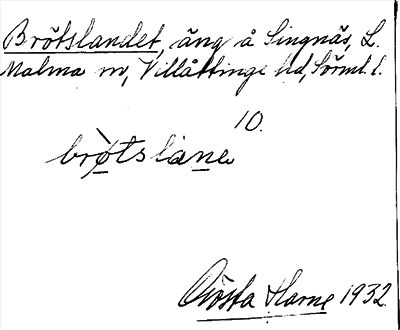 Brötslandet, äng å Singnäs, L.
Malma sn, Villåttinge hd, Sörml. l.
10.
brò̱tsla̱ne
Gösta Harne 1932.